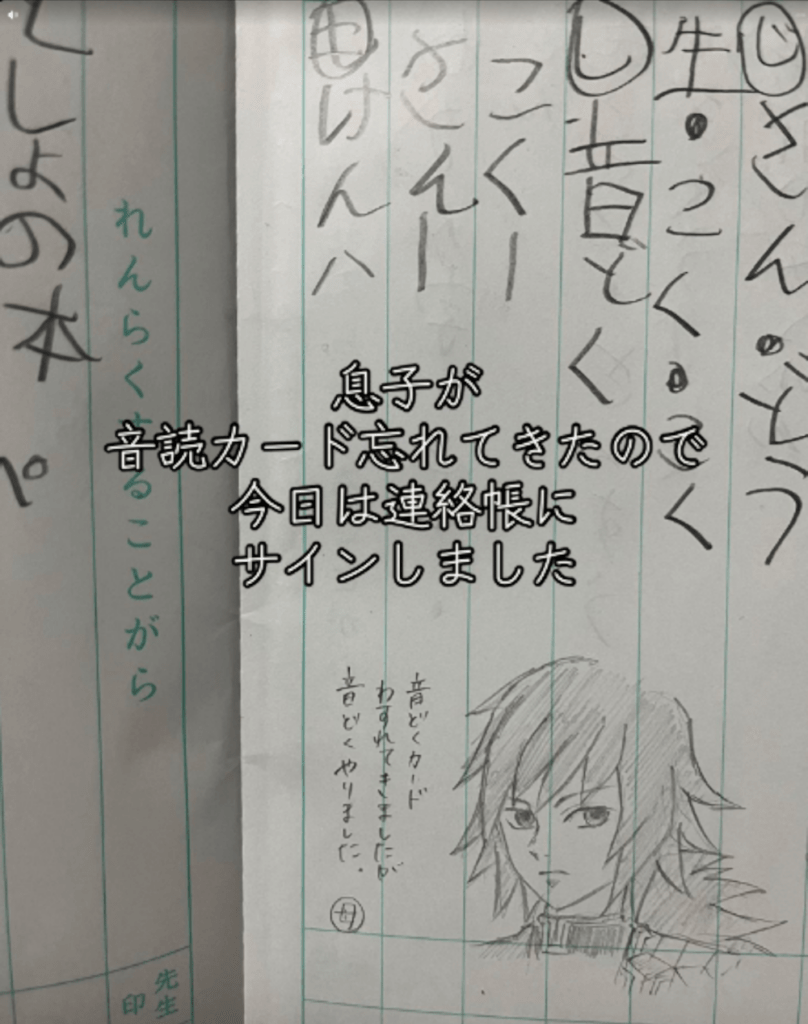 じ さん・どう
生・こく・こく
し 音どく
こくー
さんー
も けんハ
としょの本
ぺ
れんらくすることがら
息子が
音読カード忘れてきたので
今日は連絡帳に
サインしました
音どくカード
わすれてきましたが
音どくやりました。
母
先生
印